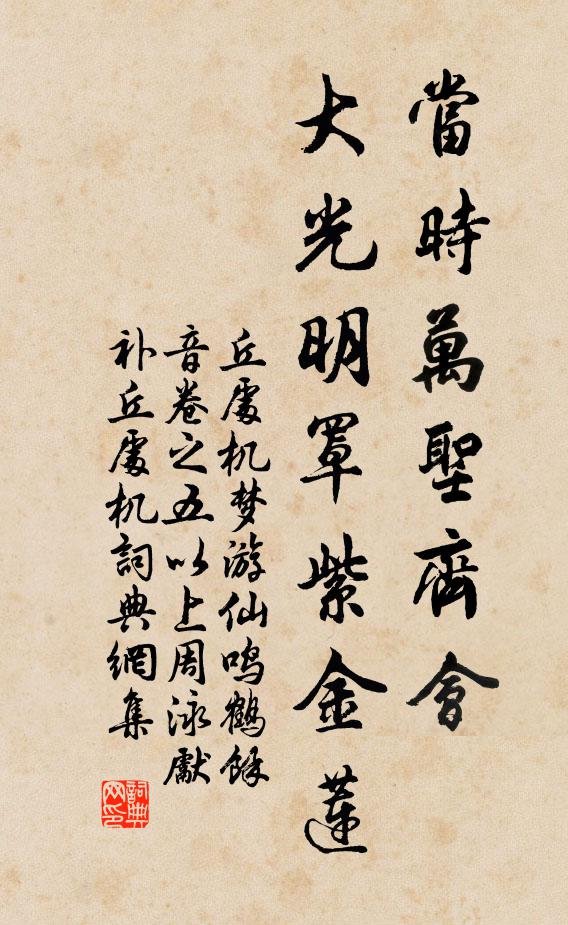 當時萬聖齊會
大光明罩紫金蓮
丘處机梦游仙鸣鶴餘
音卷之五以上周泳獻
补丘處机詞典網集
詞典
网印